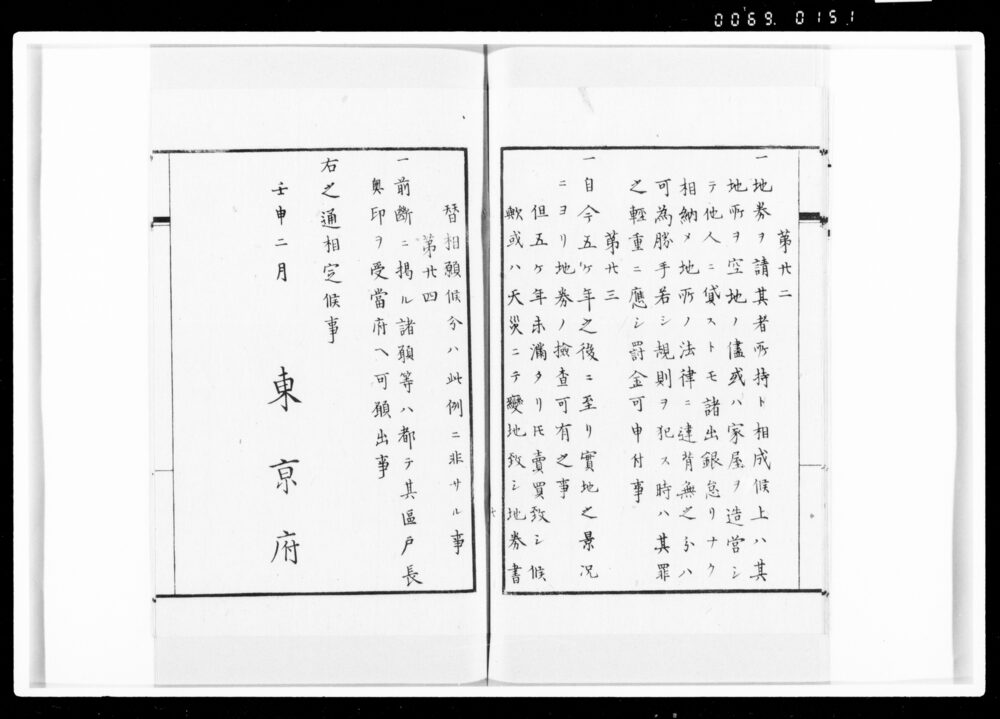 0069 0151
第廿二
一地券ヲ請其者所持ト相成候上ハ其
地所ヲ空地ノ儘或ハ家屋ヲ造営シ
テ他人ニ貸ストモ諸出銀怠リナク
相納メ地所ノ法律ニ違背無之分ハ
可為勝手若シ規則ヲ犯ス時ハ其罪
之軽重ニ應シ罰金可申付事
第廿三
一自今五ケ年之後ニ至リ實地之景況
ニヨリ地券ノ檢査可有之事
但五ケ年未満タリ𪜈賣買致シ候
歟或ハ天災ニテ變地致シ地券書
替相願候分ハ此例ニ非サル事
第廿四
一前断ニ掲ル諸願等ハ都テ其區戸長
奥印ヲ受當府ヘ可願出事
右之通相定候事
壬申二月
東京府